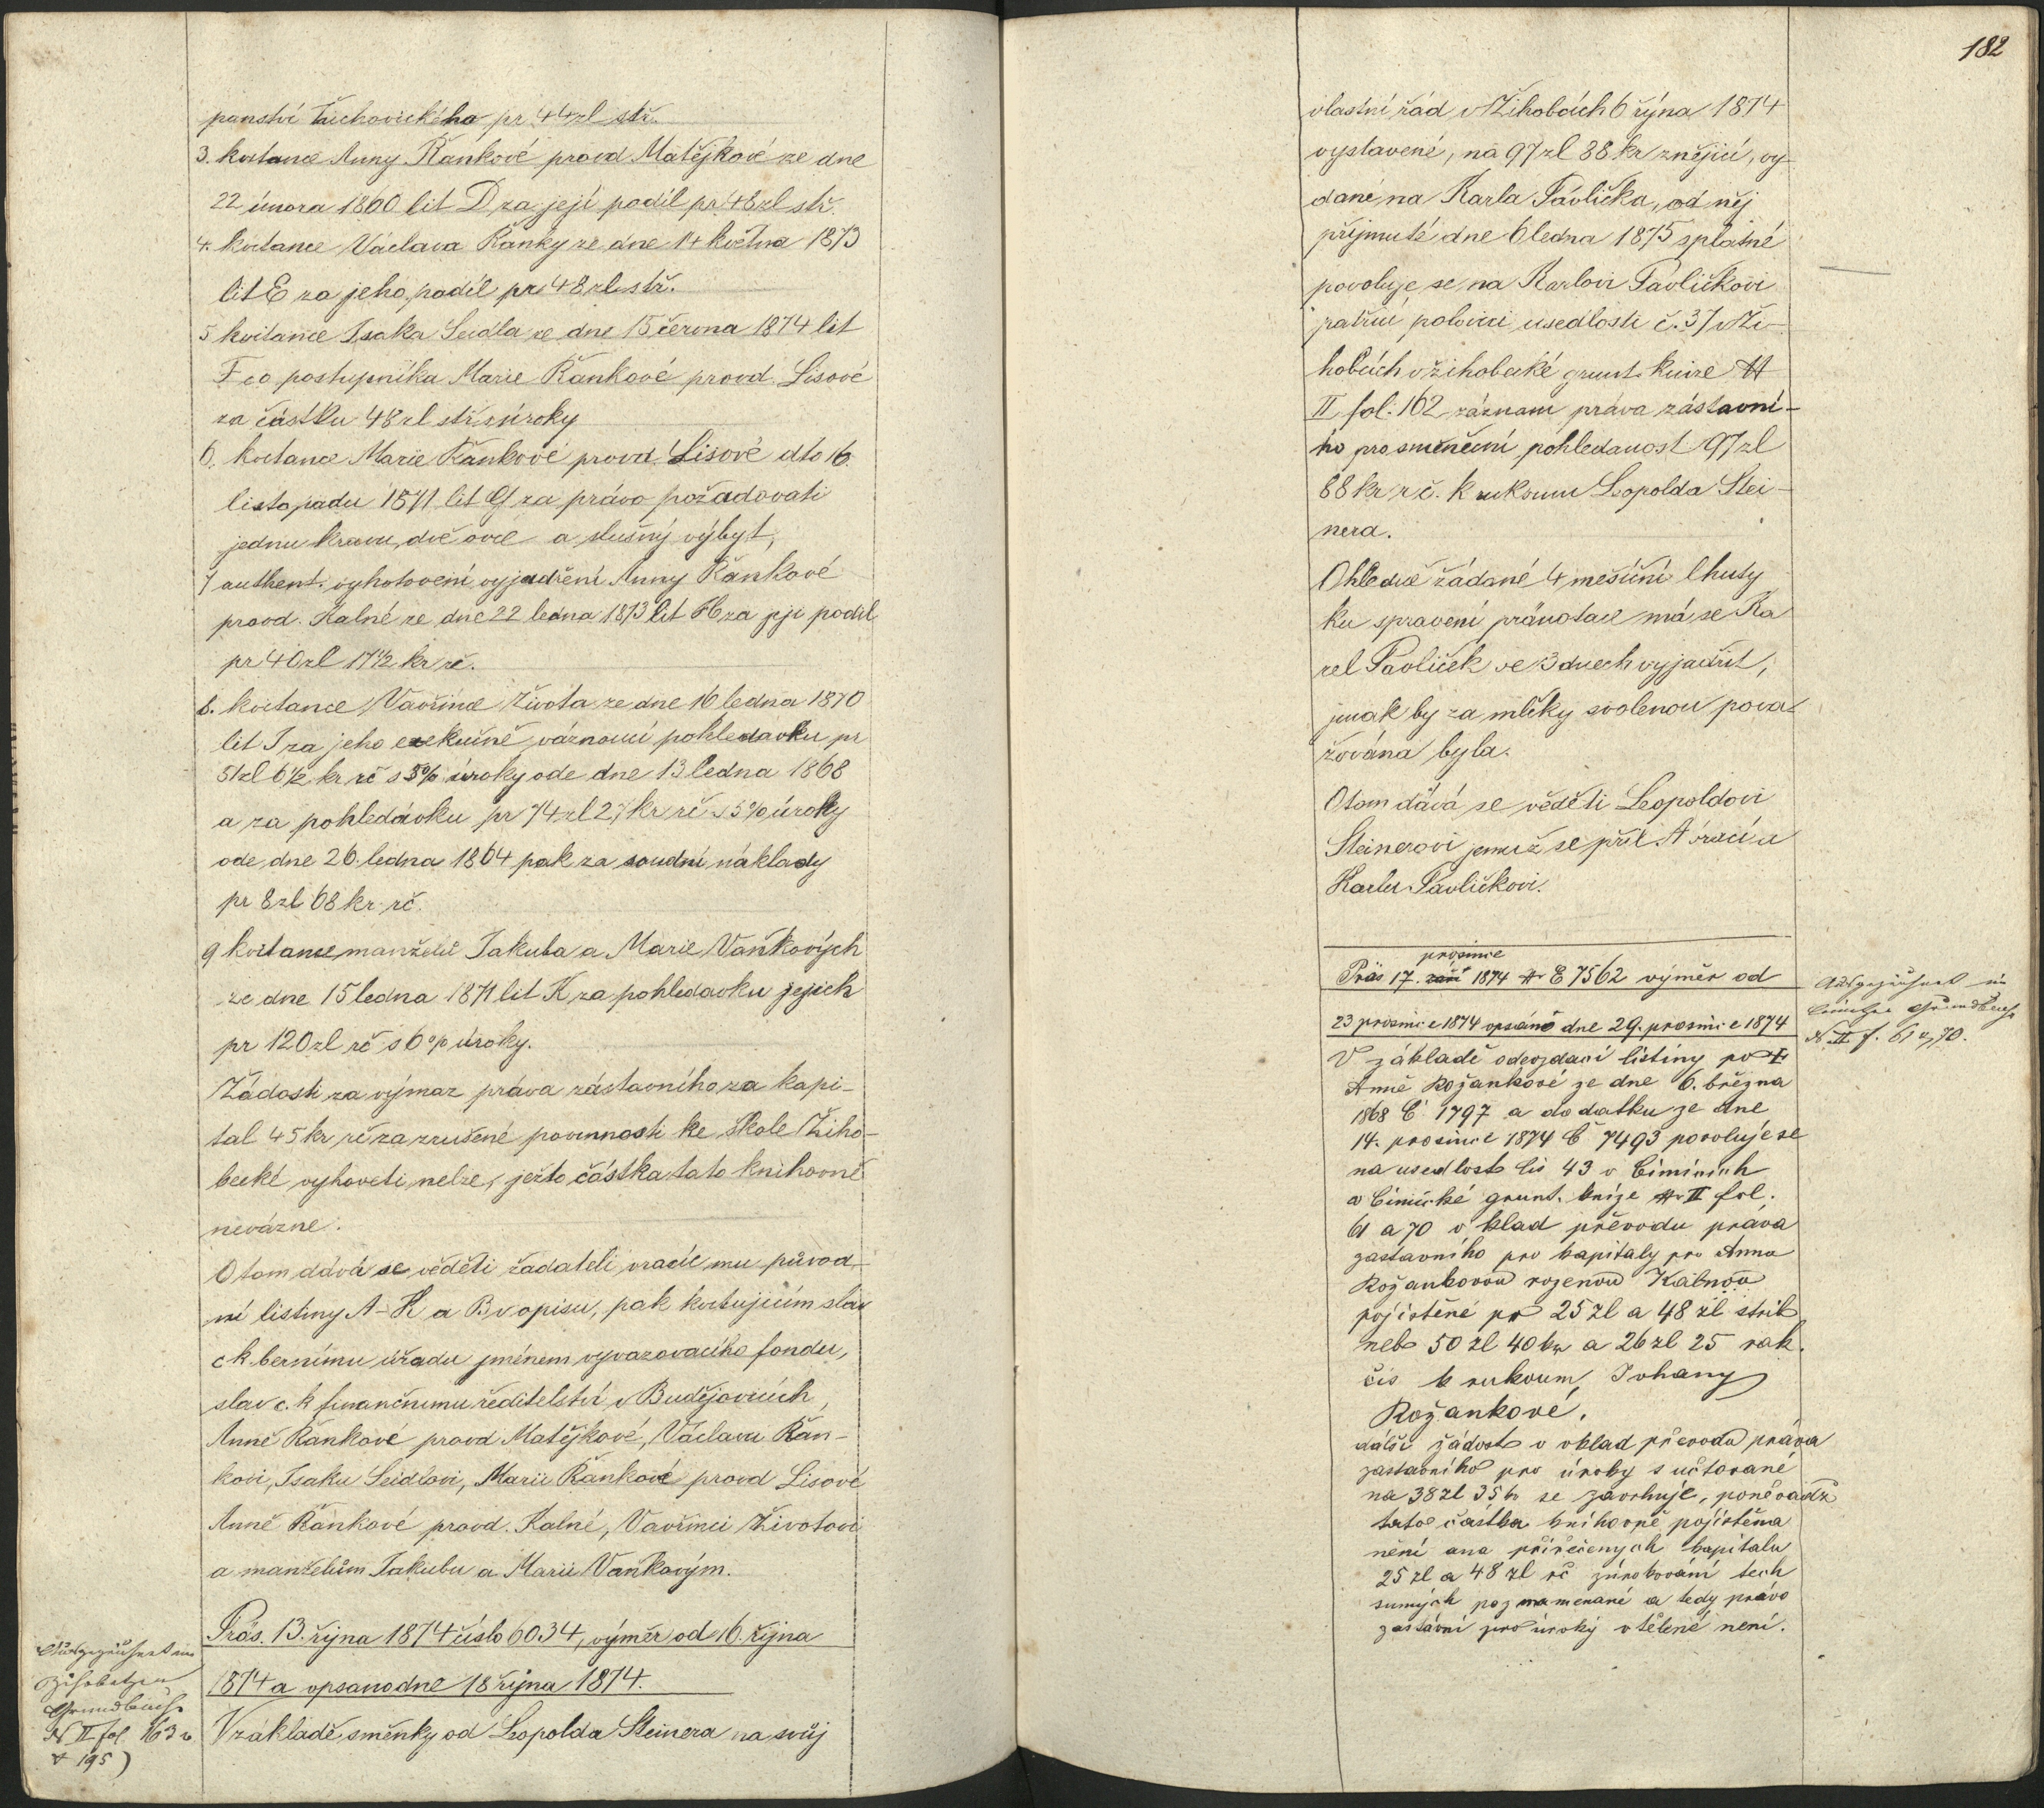 panství Žichovického pr 44 zl stř.
3. kvitance Anny Řankové provd. Matějkové ze dne
22 února 1860 lit D za její podíl pr 48 zl stř.
4. kvitance Václava Řanky ze dne 14 května 1873
lit E za jeho podíl pr 48 zl stř.
5 kvitance Isaka Seidla ze dne 15 června 1874 lit
F co postupníka Marie Řankové provd. Lisové
za částku 48 zl stř. s úroky
6. kvitance Marie Řankové provd. Lisové dto 16.
listopadu 1871 lit G za právo požadovati
jednu krávu, dvě ovce a slušný výbyt,
7 authent. vyhotovení vyjadření Anny Řankové
provd. Kalné ze dne 22 ledna 1873 lit H za její podíl
pr 40 zl 17 1/2 kr rč.
8. kvitance Vavřince Života ze dne 16 ledna 1870
lit I za jeho exekučně váznoucí pohledávku pr
51 zl 6 1/2 kr rč s 5% úroky ode dne 13 ledna 1868
a za pohledávku pr 74 zl 27 kr rč s 5% úroky
ode dne 26. ledna 1864 pak za soudní náklady
pr 8 zl 68 kr rč.
9 kvitance manželů Jakuba a Marie Vaňkových
ze dne 15 ledna 1871 lit K za pohledávku jejich
pr 120 zl rč s 6% úroky.
Žádosti za výmaz práva zástavního za kapi-
tal 45 kr rč za zrušené povinnosti ke škole Žiho-
becké vyhověti nelze, ježto částka tato knihovně
nevázne.
O tom dává se věděti žadateli vracíc mu původ-
ní listiny A-K a B v opisu, pak kvitujícím slav
c k bernímu úřadu jménem vyvazovacího fondu,
slav c. k finančnímu ředitelství v Budějovicích,
Anně Řankové provd Matějkové, Václavu Řan-
kovi, Isaku Seidlovi, Marii Řankové provd Lisové
Anně Řankové provd. Kalné, Vavřinci Životovi
a manželům Jakubu a Marii Vaňkovým.
Präs. 13. října 1874 číslo 6034, výměr od 16. října
1874 a opsano dne 18 října 1874.
V základě směnky od Leopolda Steinera na svůj
Ausgezeichnet im
Grundbuch
N II fol. 163
195)
182
vlastní řád v Žihobcích 6 října 1874
vystavené, na 97 zl 88 kr znějící, vy
dané na Karla Pavlíčka, od něj
přijmuté dne 6 ledna 1875 splatné
povoluje se na Karlovi Pavlíčkovi
patřící polovici usedlosti č. 37 v Ži-
hobcích v žihobecké grunt. knize N
II fol. 162 záznam práva zástavní-
ho pro směneční pohledanost 97 zl
88 kr r č. k rukoum Leopolda Stei-
nera.
Ohledně žádané 4 měsíční lhuty
ku spravení pränotace má se Ka
rel Pavlíček ve 3 dnech vyjádřit,
jinak by za mlčky svolenou pova-
žována byla.
O tom dává se věděti Leopoldovi
Steinerovi jemuž se příl. A vrací a
Karlu Pavlíčkovi.
prosince
Präs 17. září 1874 N E 7562 výměr od
23 prosince 1874 opsáno dne 29. prosince 1874
V základě odevzdací listiny po †
Anně Rožankové ze dne 6. března
1868 Č. 1797 a dodatku ze dne
14. prosince 1874 Č 7493 povoluje se
na usedlost čis 43 v Čimicích
v Čimické grunt. knize N II fol.
61 a 70 vklad převodu práva
zastavního pro kapitaly pro Annu
Rožankovou rozenou Kalnou
pojistěné pr 25 zl a 48 zl stříb
neb 50 zl 40 kr a 26 zl 25 rak.
čis k rukoum Johany
Rožankové.
další žádost o vklad převodu práva
zastavního pro úroky s učtované
na 38 zl 35 kr se zavrhuje, poněvadž
tato částka knihovně pojistěna
není ana při řečenych kapitalu
25 zl a 48 zl rč zúrokování těch
sumých poznamenané a tedy právo
zastavní pro úroky vtělené není.
Ausgezeichnet im
Grundbuch
N II f. 61 70.